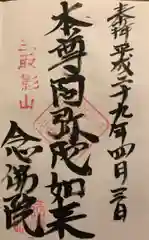 奉拝 平成二十九年四月三日
本尊阿弥陀如来
念佛院